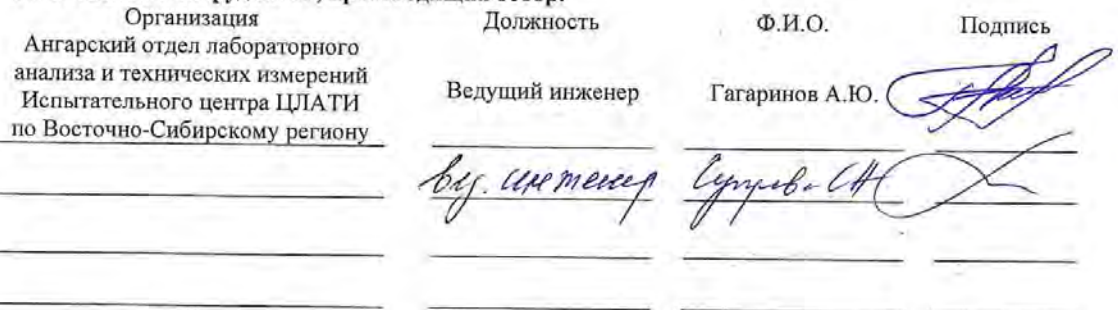 Организация Должность Ф.И.О. Подпись
Ангарский отдел лабораторного
анализа и технических измерений
Испытательного центра ЦЛАТИ
по Восточно-Сибирскому региону
Ведущий инженер Гагаринов А.Ю.
вед. инженер